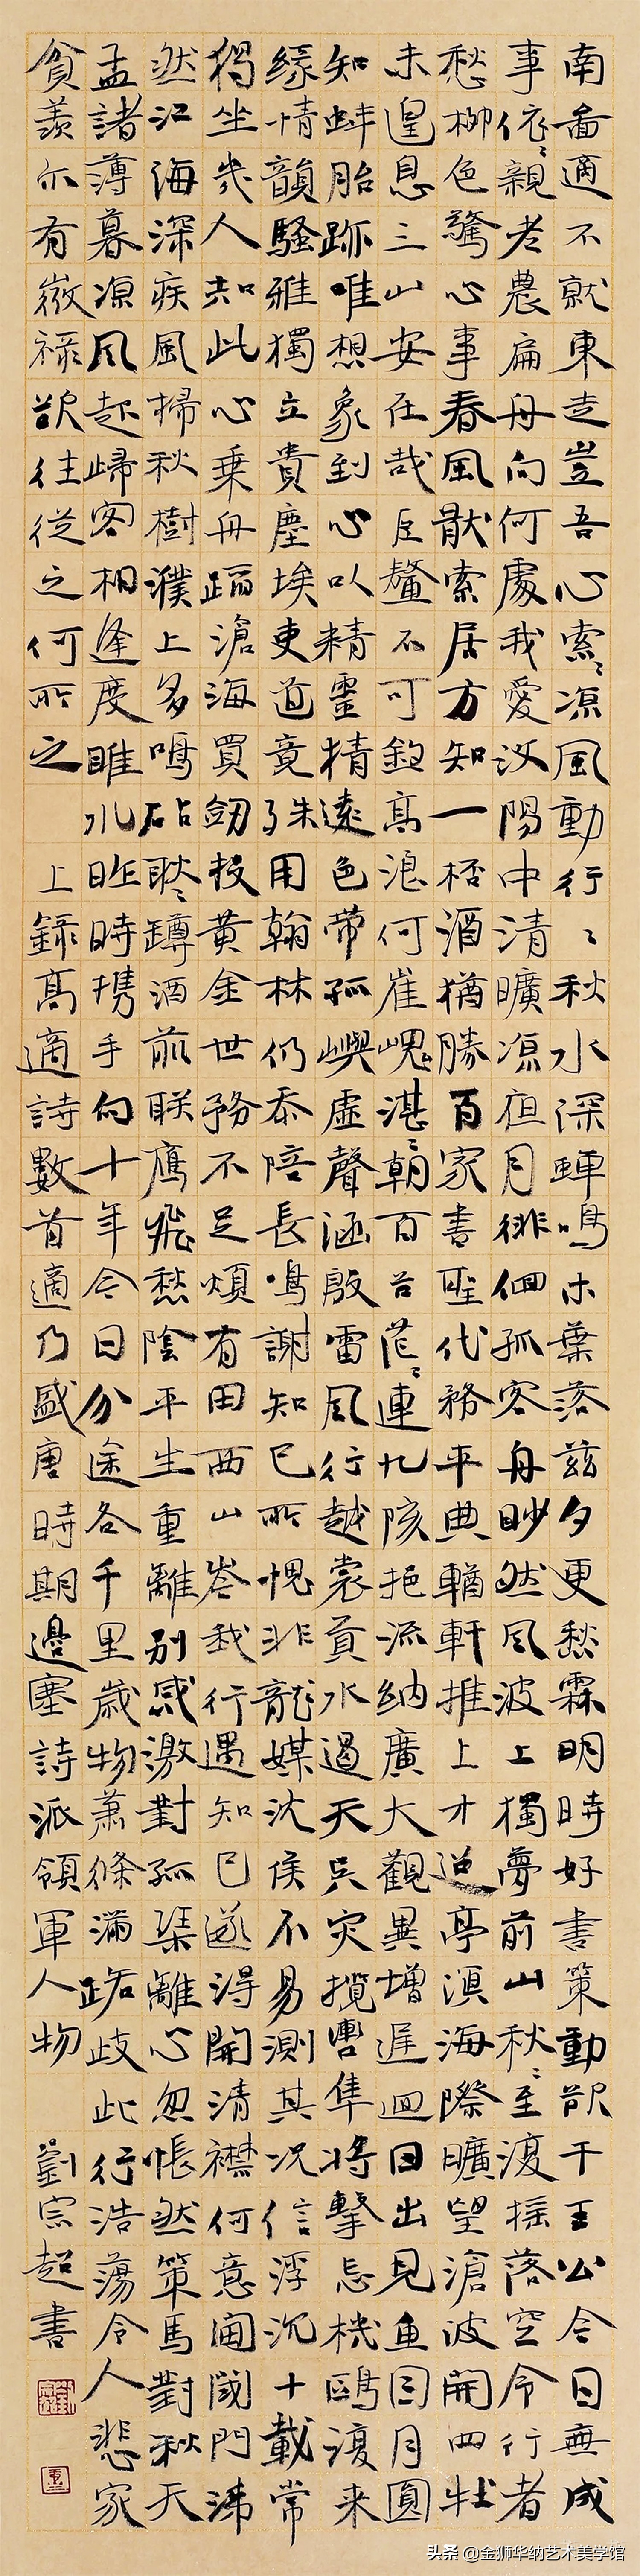 南啚適不就東走豈吾心索〻凉風動行〻秋水深蟬鳴木葉落茲夕更愁霖明時好書策動欲干王公今日無成
事依〻親老農扁舟向何處我愛汶陽中清曠凉夜月徘徊孤客舟眇然風波上獨夢前山秋〻至復搖落空令行者
愁柳色驚心事春風猒索居方知一杯酒猶勝百家書聖代務平典輶軒推上才迢亭溟海際曠望滄波開四牡
未遑息三山安在哉巨鼇不可釣高浪何崔嵬湛〻朝百谷茫〻連九垓挹流納廣大觀異增遲迴日出見魚目月圓
知蚌胎跡唯想象到心以精靈猜遠色帶孤嶼虛聲涵殷雷風行越裳貢水遏天吳灾攬轡隼將擊忘機鷗復来
緣情韻騷雅獨立貴塵埃吏道竟殊用翰林仍忝陪長鳴謝知己所愧非龍媒沈侯不易測其況信浮沉十載常
獨坐幾人知此心乘舟蹈滄海買劒投黃金世務不足煩有田西山岑我行遇知己遂得開清襟何意閫閾門沛
然江海深疾風掃秋樹濮上多鳴砧耿〻罇酒前聯鴈飛愁陰平生重離別感激對孤琹離心忽悵然策馬對秋天
孟諸薄暮凉風起歸客相逢度睢水昨時携手向十年今日分途各千里歲物蕭條滿路歧此行浩蕩令人悲家
貧羨尔有微祿欲往從之何所之 上錄高適詩數首適乃盛唐時期邊塞詩派領軍人物 劉宗超書
头条 @金狮华纳艺术美学馆